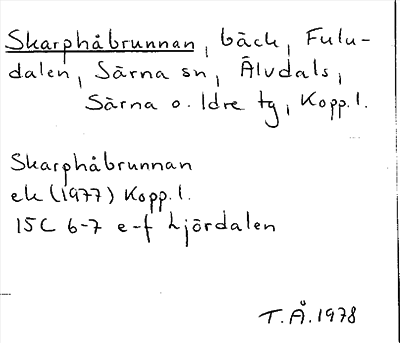 Skarphåbrunnan, bäck, Fulu-
dalen, Särna sn, Älvdals,
Särna o. Idre tg, Kopp.l.
Skarphåbrunnan
ek (1977) Kopp.l.
15C 6-7 e-f Ljördalen
T.Å.1978